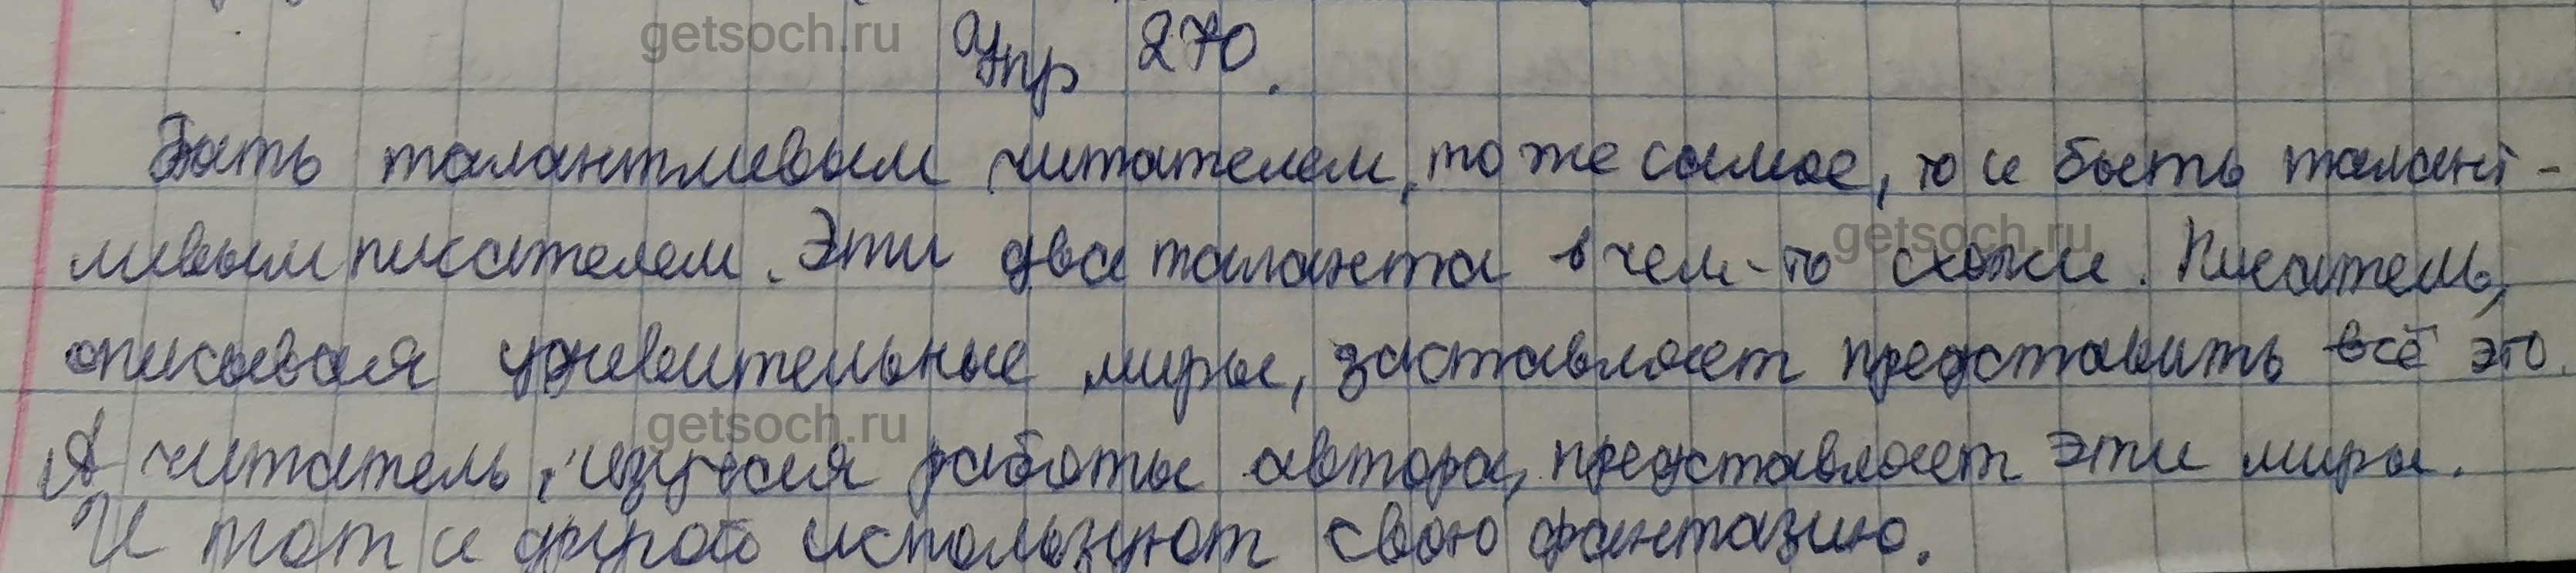 Упр 270.
Быть талантливым читателем, то же самое, то и быть талант-
ливым писателем. Эти два таланта в чем-то схожи. Писатель,
описывая удивительные миры, заставляет представить всё это.
А читатель, изучая работы автора, представляет эти миры.
И тот и другой используют свою фантазию.
getsoch.ru
getsoch.ru
getsoch.ru